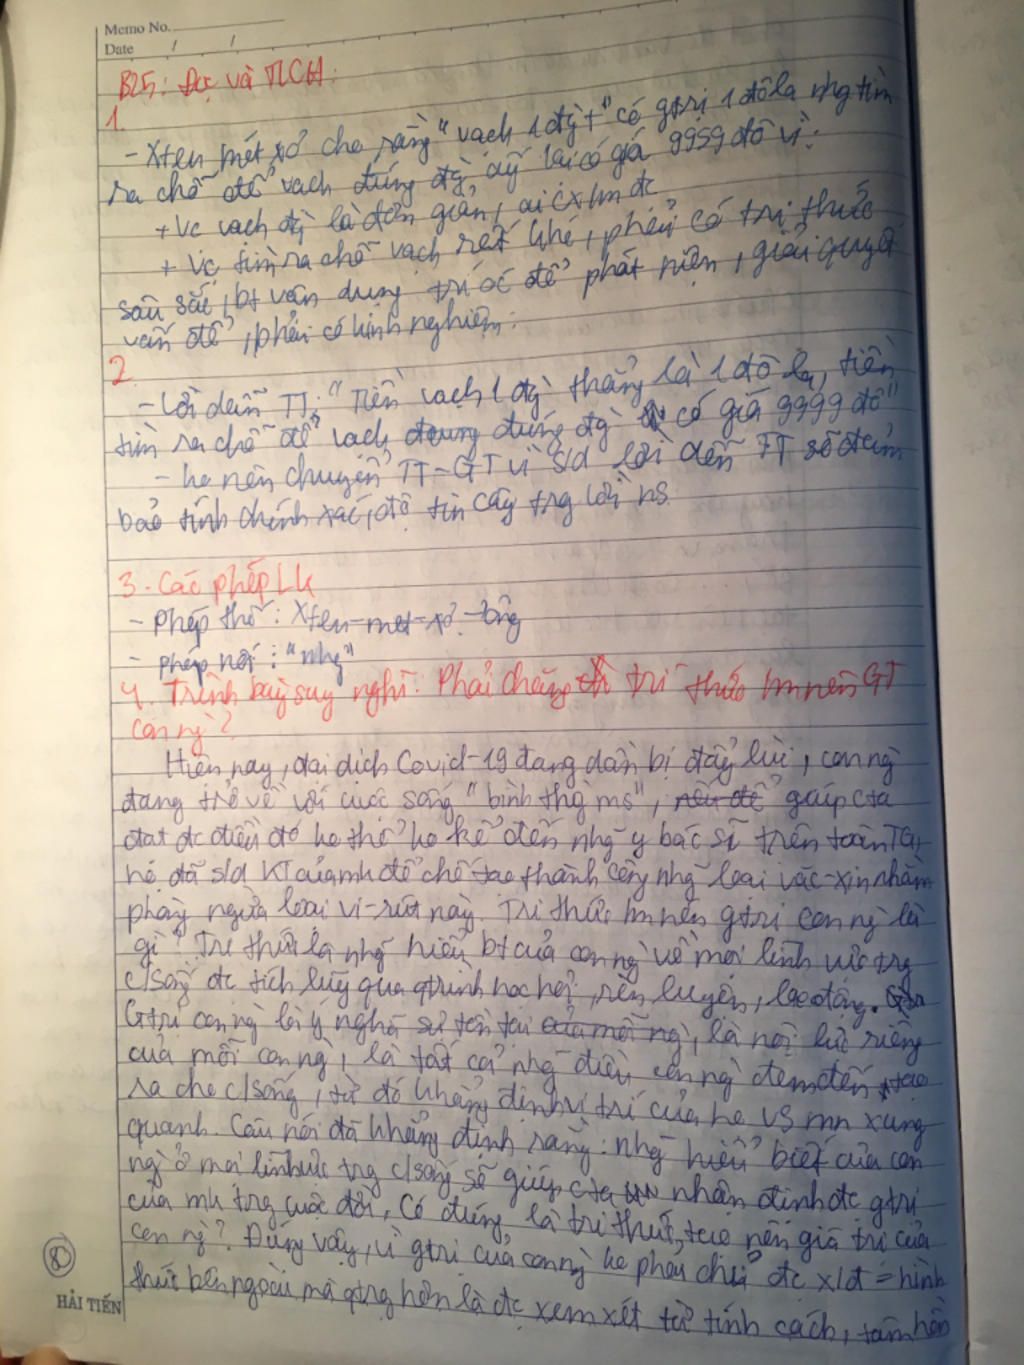 Memo No.
Date / /
B25: Đọc và TLCH:
1.
- Xten mét xơ cho rằng "vạch 1 đg t" có gtrị 1 đôla nhg tìm
ra chỗ để vạch đúng đg ấy lại có giá 9959 đô vì:
+ Vc vạch đg là đơn giản, ai cx lm đc
+ Vc tìm ra chỗ vạch rất khó, phải có tri thức
sâu sắc, bt vận dụng trí óc để phát hiện, giải quyết
vấn đề, phải có kinh nghiệm.
2.
- Lời dẫn TT: "Tiền vạch 1 đg thẳng là 1 đô la, tiền
tìm ra chỗ để vạch đúng đg có giá 9999 đô"
- ko nên chuyển TT - GT vì s/d lời dẫn TT sẽ đảm
bảo tính chính xác, độ tin cậy trg lời ns
3. Các phép LK
- phép thế: Xten-met-xơ - ông
- phép nối: "nhg"
4. Trình bày suy nghĩ: Phải chăng tri thức lm nên GT
con ng?
Hiện nay, đại dịch Covid-19 đang dần bị đẩy lùi, con ng
đang trở về với cuộc sống "bình thg ms", giúp cta
đạt đc điều đó ko thể ko kể đến nhg y bác sĩ trên toàn TG,
họ đã s/d KT của mh để chế tạo thành công nhg loại vắc-xin nhằm
phòng ngừa loại vi-rút này. Tri thức lm nên gtrị con ng là
gì? Tri thức là nhg hiểu bt của con ng về mọi lĩnh vực trg
c/sống đc tích lũy qua qtrình học hỏi, rèn luyện, lao động.
Gtrị con ng là ý nghĩa sự tồn tại của mỗi ng, là nội lực riêng
của mỗi con ng, là tất cả nhg điều con ng đem đến, tạo
ra cho c/sống, từ đó khẳng định vị trí của họ vs mn xung
quanh. Câu nói đã khẳng định rằng: nhg hiểu biết của con
ng ở mọi lĩnh vực trg c/sống sẽ giúp cta nhận định đc gtrị
của mh trg cuộc đời. Có đúng là tri thức tạo nên giá trị của
con ng? Đúng vậy, vì gtrị của con ng ko phải chỉ đc x/đ = hình
thức bên ngoài mà qtrg hơn là đc xem xét từ tính cách, tâm hồn
80
HẢI TIẾN